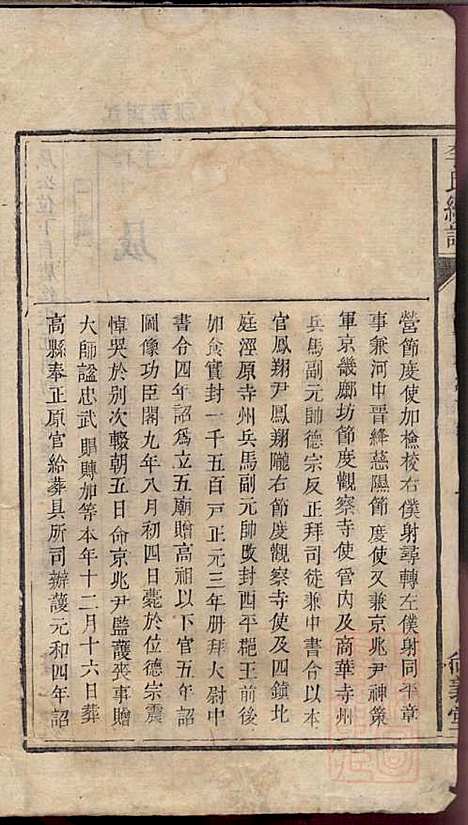 李氏
營節度使加檢校右僕射尋轉左僕射同平章
事兼河中晋絳慈隰節度使又兼京兆尹神策
軍京畿鄜坊節度觀察寺使管内及商華寺州
兵馬副元帥德宗反正拜司徒兼中書令以本
官鳳翔尹鳳翔隴右節度觀察寺使及四鎮北
庭涇原寺州兵馬副元帥改封西平王前後
加食實封一千五百戸正元三年册拜大尉中
書令四年詔爲立五廟贈高祖以下官五年詔
圖像功臣閣九年八月初四日薨於位德宗震
悼哭於别次輟朝五日命京兆尹監護喪事贈
大師謚忠武賵賻加等本年十二月十六日葬
高縣奉正原官給葬具所司辦護元和四年詔